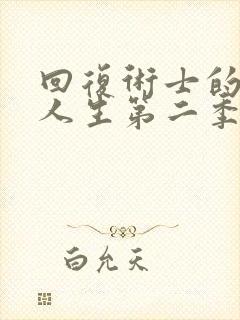 回復術士的
人生第二季
白允天